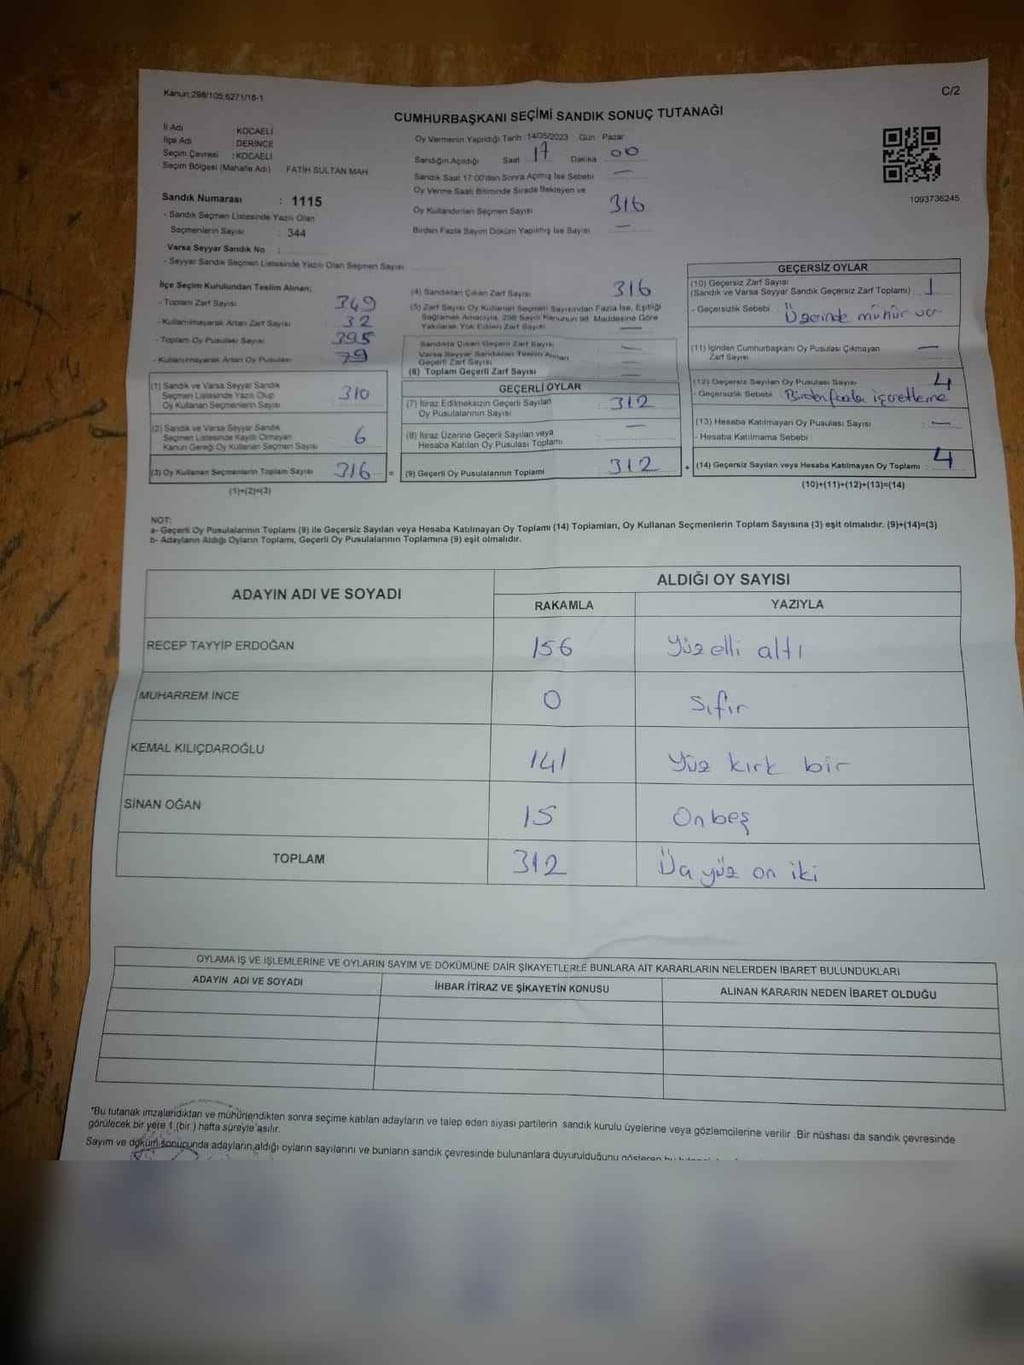 Kanun:298/105,6271/18-1
C/2
CUMHURBAŞKANI SEÇİMİ SANDIK SONUÇ TUTANAĞI
İl Adı KOCAELİ
İlçe Adı DERİNCE
Seçim Çevresi : KOCAELİ
Seçim Bölgesi (Mahalle Adı) FATİH SULTAN MAH
Sandık Numarası : 1115
- Sandık Seçmen Listesinde Yazılı Olan
Seçmenlerin Sayısı : 344
Varsa Seyyar Sandık No
- Seyyar Sandık Seçmen Listesinde Yazılı Olan Seçmen Sayısı
Oy Vermenin Yapıldığı Tarih 14/05/2023 Gün Pazar
Sandığın Açıldığı Saat 17 Dakika 00
Sandık Saat 17:00'den Sonra Açılmış İse Sebebi —
Oy Verme Saati Bitiminde Sırada Bekleyen ve
Oy Kullandırılan Seçmen Sayısı 316
Birden Fazla Sayım Döküm Yapılmış İse Sayısı —
1093736245
İlçe Seçim Kurulundan Teslim Alınan;
- Toplam Zarf Sayısı 349
- Kullanılmayarak Artan Zarf Sayısı 32
- Toplam Oy Pusulası Sayısı 395
- Kullanılmayarak Artan Oy Pusulası 79
(1) Sandık ve Varsa Seyyar Sandık
Seçmen Listesinde Yazılı Olup
Oy Kullanan Seçmenlerin Sayısı 310
(2) Sandık ve Varsa Seyyar Sandık
Seçmen Listesinde Kayıtlı Olmayan
Kanun Gereği Oy Kullanan Seçmen Sayısı 6
(3) Oy Kullanan Seçmenlerin Toplam Sayısı 316 =
(1)+(2)=(3)
(4) Sandıktan Çıkan Zarf Sayısı 316
(5) Zarf Sayısı Oy Kullanan Seçmen Sayısından Fazla İse, Eşitliği
Sağlamak Amacıyla, 298 Sayılı Kanunun 98. Maddesine Göre
Yakılarak Yok Edilen Zarf Sayısı —
Sandıkta Çıkan Geçerli Zarf Sayısı —
Varsa Seyyar Sandıktan Teslim Alınan
Geçerli Zarf Sayısı —
(6) Toplam Geçerli Zarf Sayısı —
GEÇERLİ OYLAR
(7) İtiraz Edilmeksizin Geçerli Sayılan
Oy Pusulalarının Sayısı 312
(8) İtiraz Üzerine Geçerli Sayılan veya
Hesaba Katılan Oy Pusulası Toplamı —
(9) Geçerli Oy Pusulalarının Toplamı 312 +
GEÇERSİZ OYLAR
(10) Geçersiz Zarf Sayısı
(Sandık ve Varsa Seyyar Sandık Geçersiz Zarf Toplamı) 1
- Geçersizlik Sebebi Üzerinde mühür var
(11) İçinden Cumhurbaşkanı Oy Pusulası Çıkmayan
Zarf Sayısı —
(12) Geçersiz Sayılan Oy Pusulası Sayısı 4
- Geçersizlik Sebebi Birden fazla işaretleme
(13) Hesaba Katılmayan Oy Pusulası Sayısı —
- Hesaba Katılmama Sebebi
(14) Geçersiz Sayılan veya Hesaba Katılmayan Oy Toplamı 4
(10)+(11)+(12)+(13)=(14)
NOT:
a- Geçerli Oy Pusulalarının Toplamı (9) ile Geçersiz Sayılan veya Hesaba Katılmayan Oy Toplamı (14) Toplamları, Oy Kullanan Seçmenlerin Toplam Sayısına (3) eşit olmalıdır. (9)+(14)=(3)
b- Adayların Aldığı Oyların Toplamı, Geçerli Oy Pusulalarının Toplamına (9) eşit olmalıdır.
ADAYIN ADI VE SOYADI ALDIĞI OY SAYISI
RAKAMLA YAZIYLA
RECEP TAYYİP ERDOĞAN 156 Yüz elli altı
MUHARREM İNCE 0 Sıfır
KEMAL KILIÇDAROĞLU 141 Yüz kırk bir
SİNAN OĞAN 15 Onbeş
TOPLAM 312 Üç yüz on iki
OYLAMA İŞ VE İŞLEMLERİNE VE OYLARIN SAYIM VE DÖKÜMÜNE DAİR ŞİKAYETLERLE BUNLARA AİT KARARLARIN NELERDEN İBARET BULUNDUKLARI
ADAYIN ADI VE SOYADI İHBAR İTİRAZ VE ŞİKAYETİN KONUSU ALINAN KARARIN NEDEN İBARET OLDUĞU
*Bu tutanak imzalandıktan ve mühürlendikten sonra seçime katılan adayların ve talep eden siyasi partilerin sandık kurulu üyelerine veya gözlemcilerine verilir. Bir nüshası da sandık çevresinde
görülecek bir yere 1 (bir) hafta süreyle asılır.
Sayım ve döküm sonucunda adayların aldığı oyların sayılarını ve bunların sandık çevresinde bulunanlara duyurulduğunu gösteren